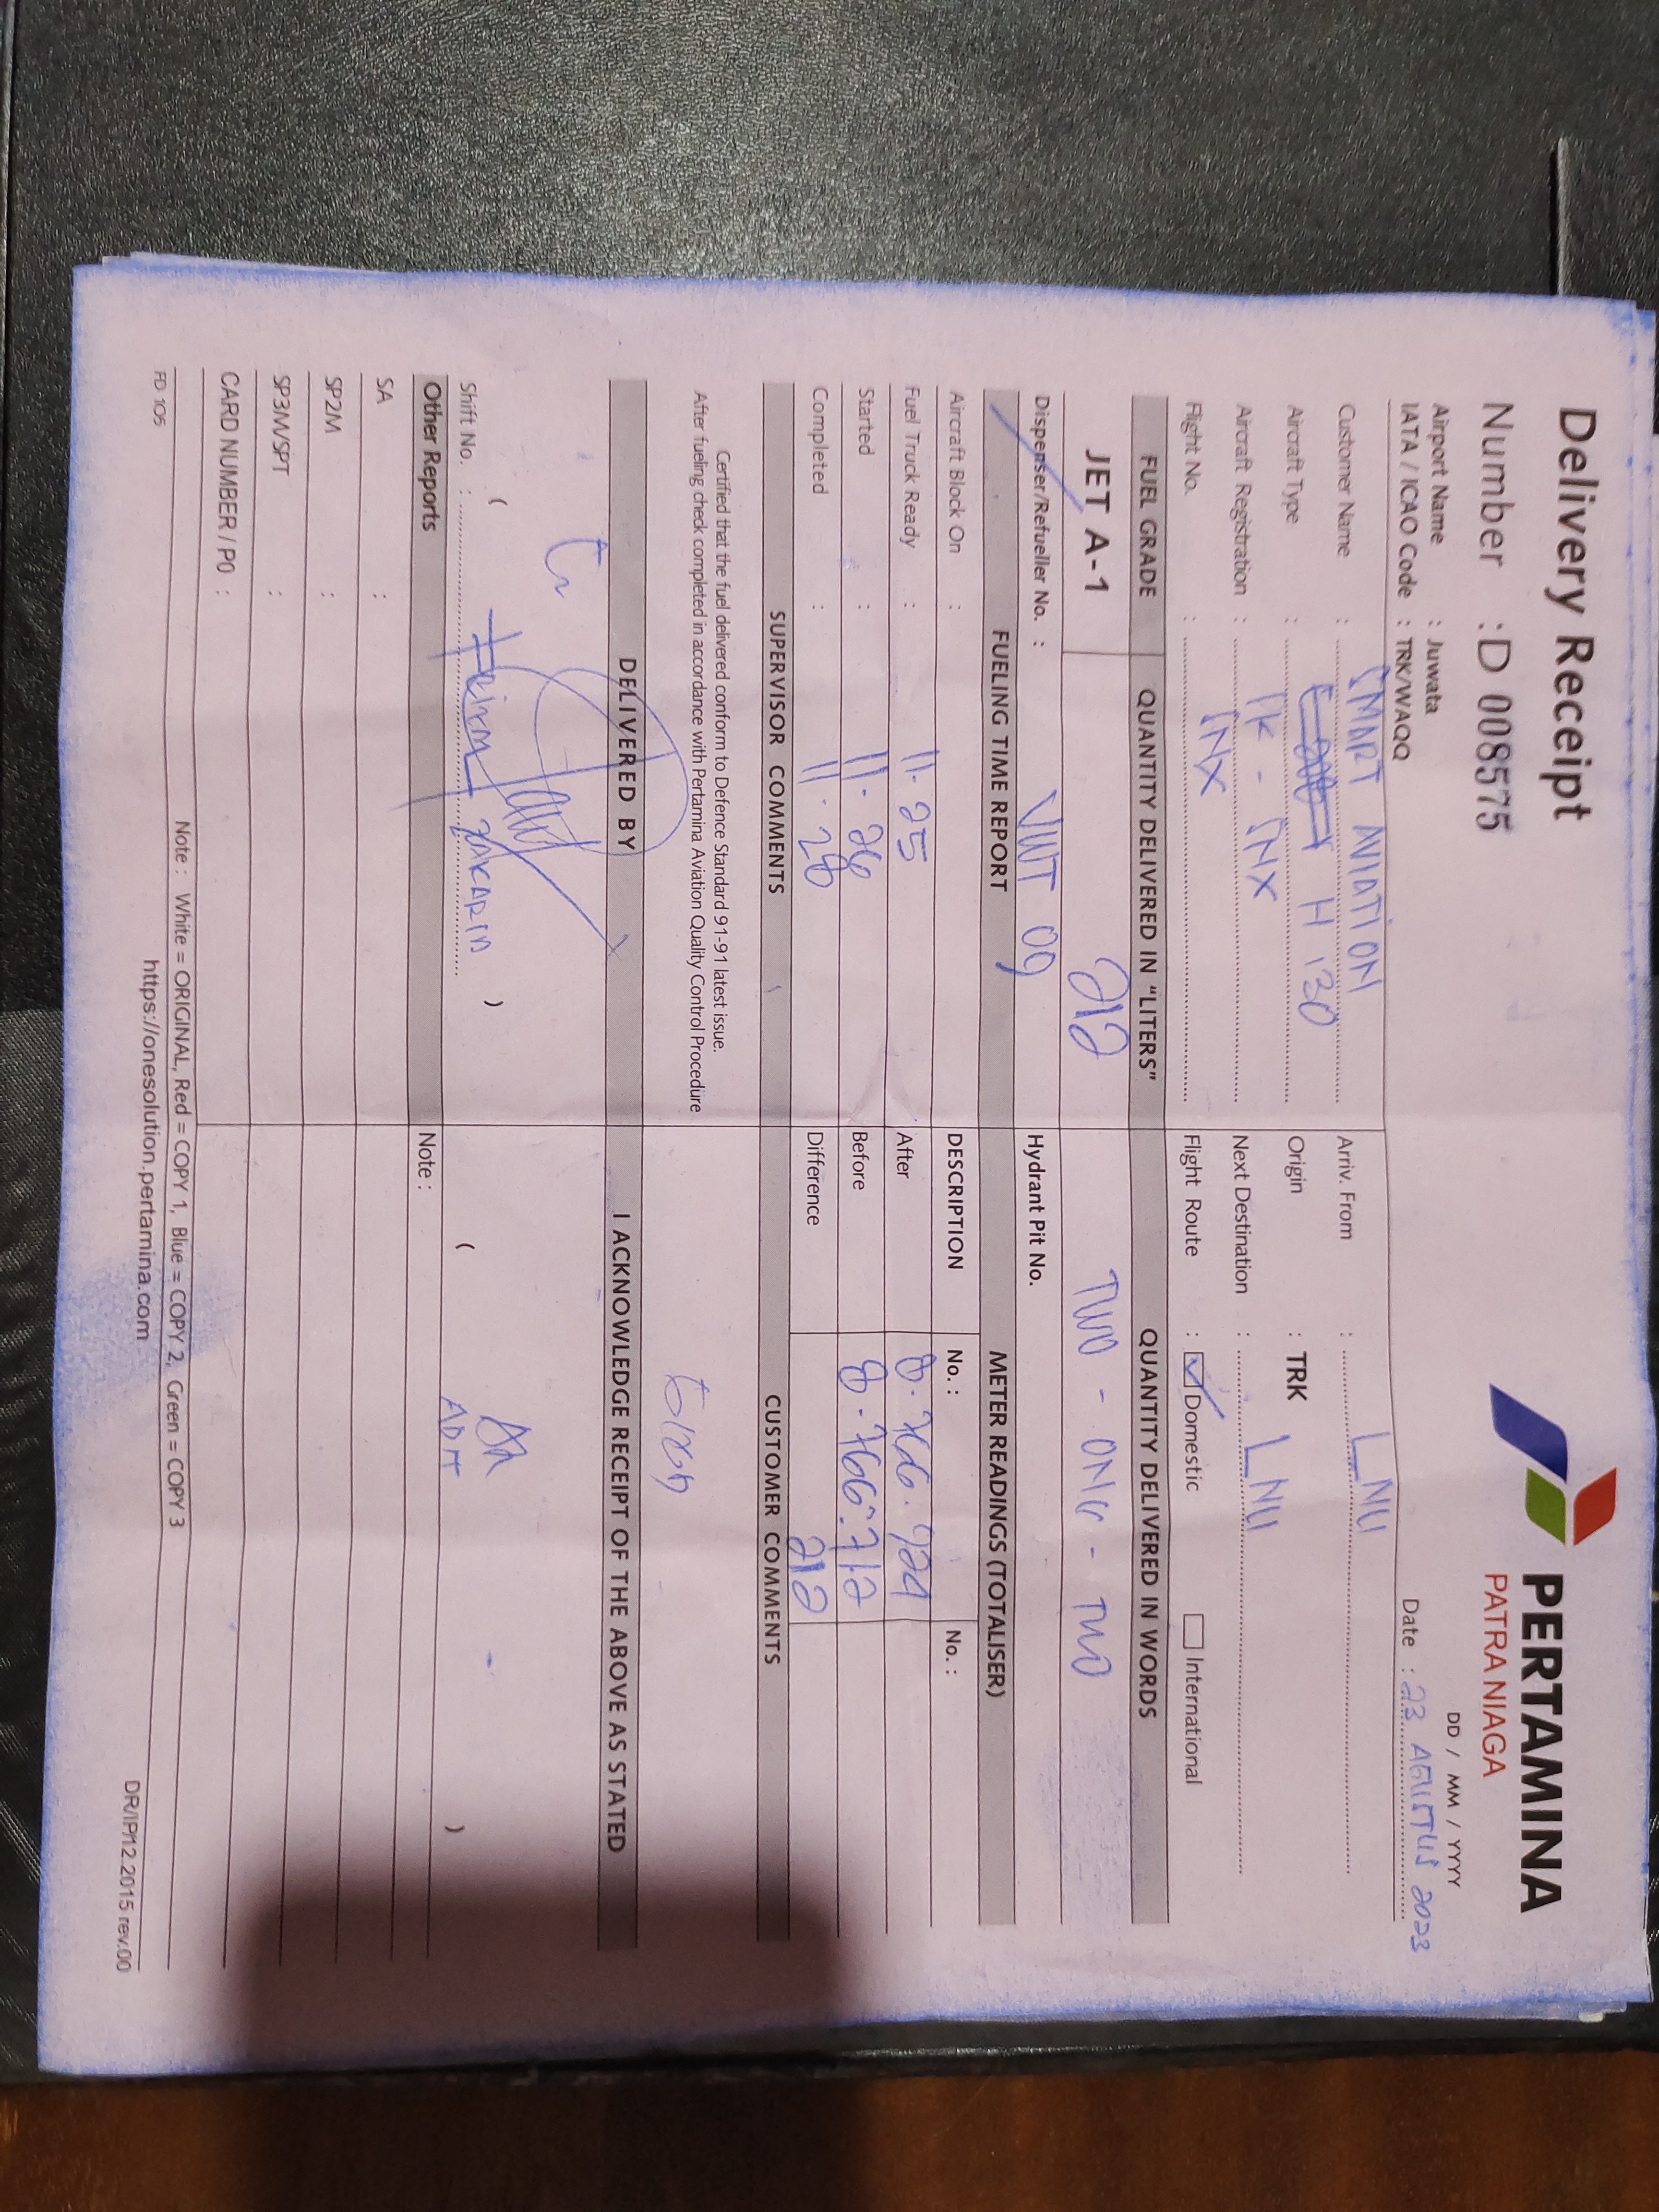 Delivery Receipt
PERTAMINA
PATRA NIAGA
Number : D 008575
DD / MM / YYYY
Airport Name : Juwata
IATA / ICAO Code : TRK/WAQQ
Date : 23 AGUSTUS 2023
Customer Name : SMART AVIATION
Arriv. From : LNU
Aircraft Type : H 130
Origin : TRK
Aircraft Registration : PK - SNX
Next Destination : LNU
Flight No. : SNX
Flight Route : Domestic International
FUEL GRADE QUANTITY DELIVERED IN "LITERS" QUANTITY DELIVERED IN WORDS
JET A-1 212 TWO - ONE - TWO
Dispenser/Refueller No. : 09
Hydrant Pit No.
FUELING TIME REPORT METER READINGS (TOTALISER)
Aircraft Block On :
DESCRIPTION No. : No. :
Fuel Truck Ready : 11.25
After 8.766.924
Started : 11.26
Before 8.766.712
Completed : 11.28
Difference 212
SUPERVISOR COMMENTS CUSTOMER COMMENTS
Certified that the fuel delivered conform to Defence Standard 91-91 latest issue.
After fueling check completed in accordance with Pertamina Aviation Quality Control Procedure
DELIVERED BY I ACKNOWLEDGE RECEIPT OF THE ABOVE AS STATED
( )
( )
Shift No. : ZAKARIA
Other Reports Note :
SA :
SP2M :
SP3M/SPT :
CARD NUMBER / PO :
Note : White = ORIGINAL, Red = COPY 1, Blue = COPY 2, Green = COPY 3
FD 105 https://onesolution.pertamina.com DR/IP/12.2015 rev.00